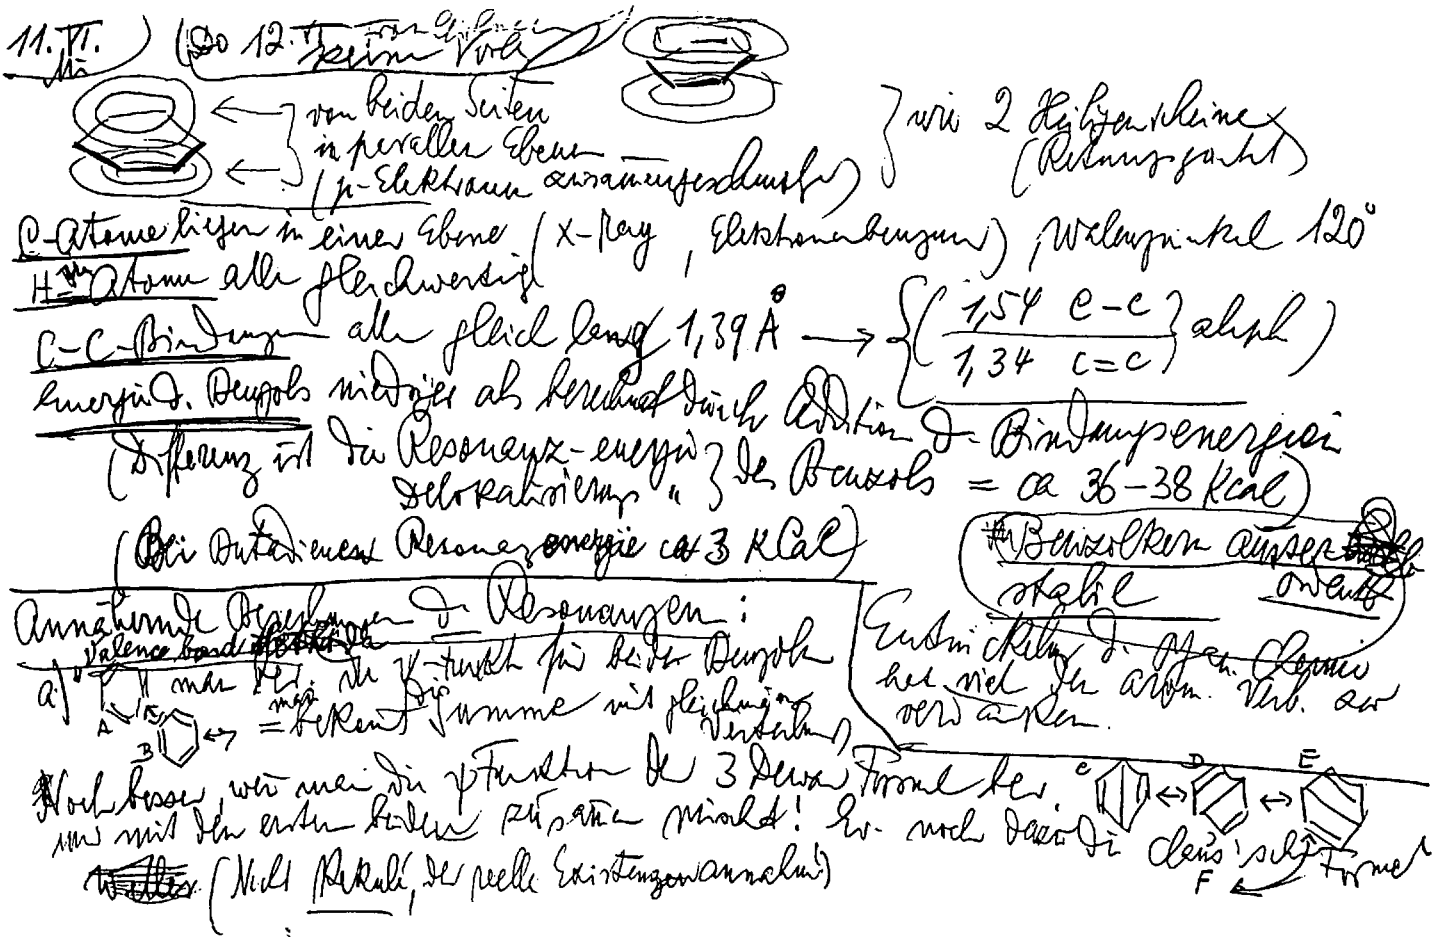 11. VI. Mi
(Do 12. VI keine Vorl
von beiden Seiten
in parallen Ebenen
(p-Elektronen zusammengeschmolzen)
wie 2 Heiligenscheine
C-Atome liegen in einer Ebene (X-Ray, Elektronenbeugung), Valenzwinkel 120°
H-Atome alle gleichwertig
C-C-Bindungen alle gleich lang 1,39 Å → {( 1,54 C-C
1,34 C=C } aliph)
Energie d. Benzols niedriger als berechnet durch Addition d. Bindungsenergien
(Differenz ist die Resonanz-energie
Delokalisierungs " } des Benzols = ca 36-38 Kcal)
(Bei Butadienen Resonanzenergie ca 3 KCal)
Benzolkern ausser
ordentl
stabil
Annähernde Beziehungen d. Resonanzen:
Valence bond
a) man ber. die ψ-Funkt für beide Benzole
A B ↔ = man bekommt die Summe mit gleichmäss
Verteilung
Entwickelung d. organ. Chemie
hat viel den arom. Verb. zu
verdanken.
Noch besser, wenn man die ψ Funktion der 3 Dewar Formel ber.
und mit den ersten beiden zusammen mischt! Ev. noch dazu die Claus'sche Formel
C ↔ D ↔ E
F
(Nicht Kekulé, der reelle Existenzen annahm!)